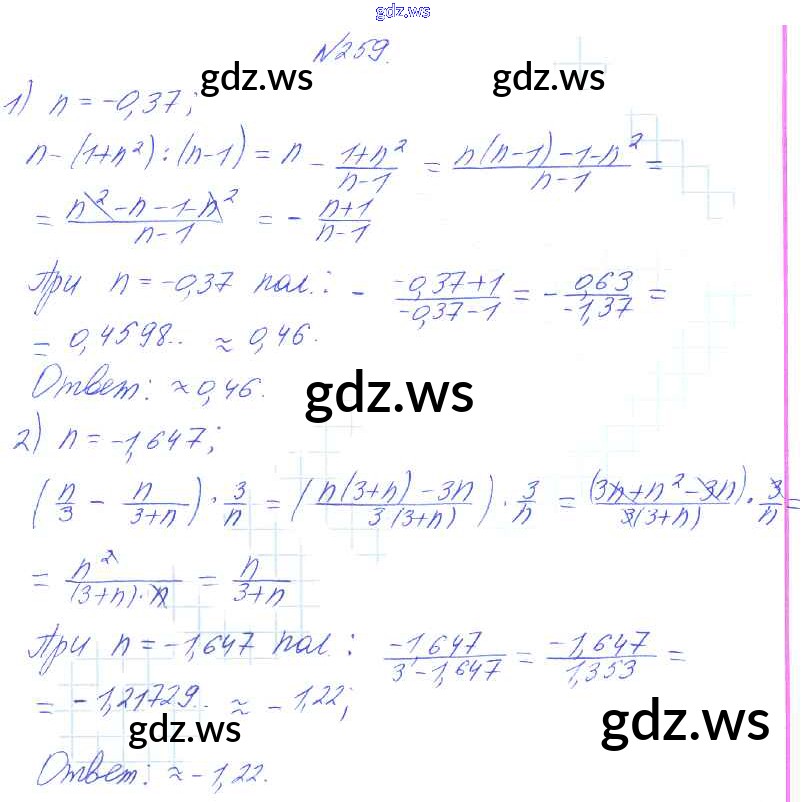 gdz.ws
№259.
gdz.ws gdz.ws
1) n = -0,37;
n - (1+n²) : (n-1) = n - \frac{1+n²}{n-1} = \frac{n(n-1)-1-n²}{n-1} =
= \frac{n²-n-1-n²}{n-1} = - \frac{n+1}{n-1}
При n = -0,37 пол.: - \frac{-0,37+1}{-0,37-1} = - \frac{0,63}{-1,37} =
= 0,4598.. ≈ 0,46.
Ответ: ≈ 0,46.
gdz.ws
2) n = -1,647;
(\frac{n}{3} - \frac{n}{3+n}) · \frac{3}{n} = (\frac{n(3+n)-3n}{3(3+n)}) · \frac{3}{n} = \frac{(3n+n²-3n)}{3(3+n)} · \frac{3}{n} =
= \frac{n²}{(3+n)·n} = \frac{n}{3+n}
При n = -1,647 пол.: \frac{-1,647}{3-1,647} = \frac{-1,647}{1,353} =
= -1,21729.. ≈ -1,22;
gdz.ws gdz.ws
Ответ: ≈ -1,22.